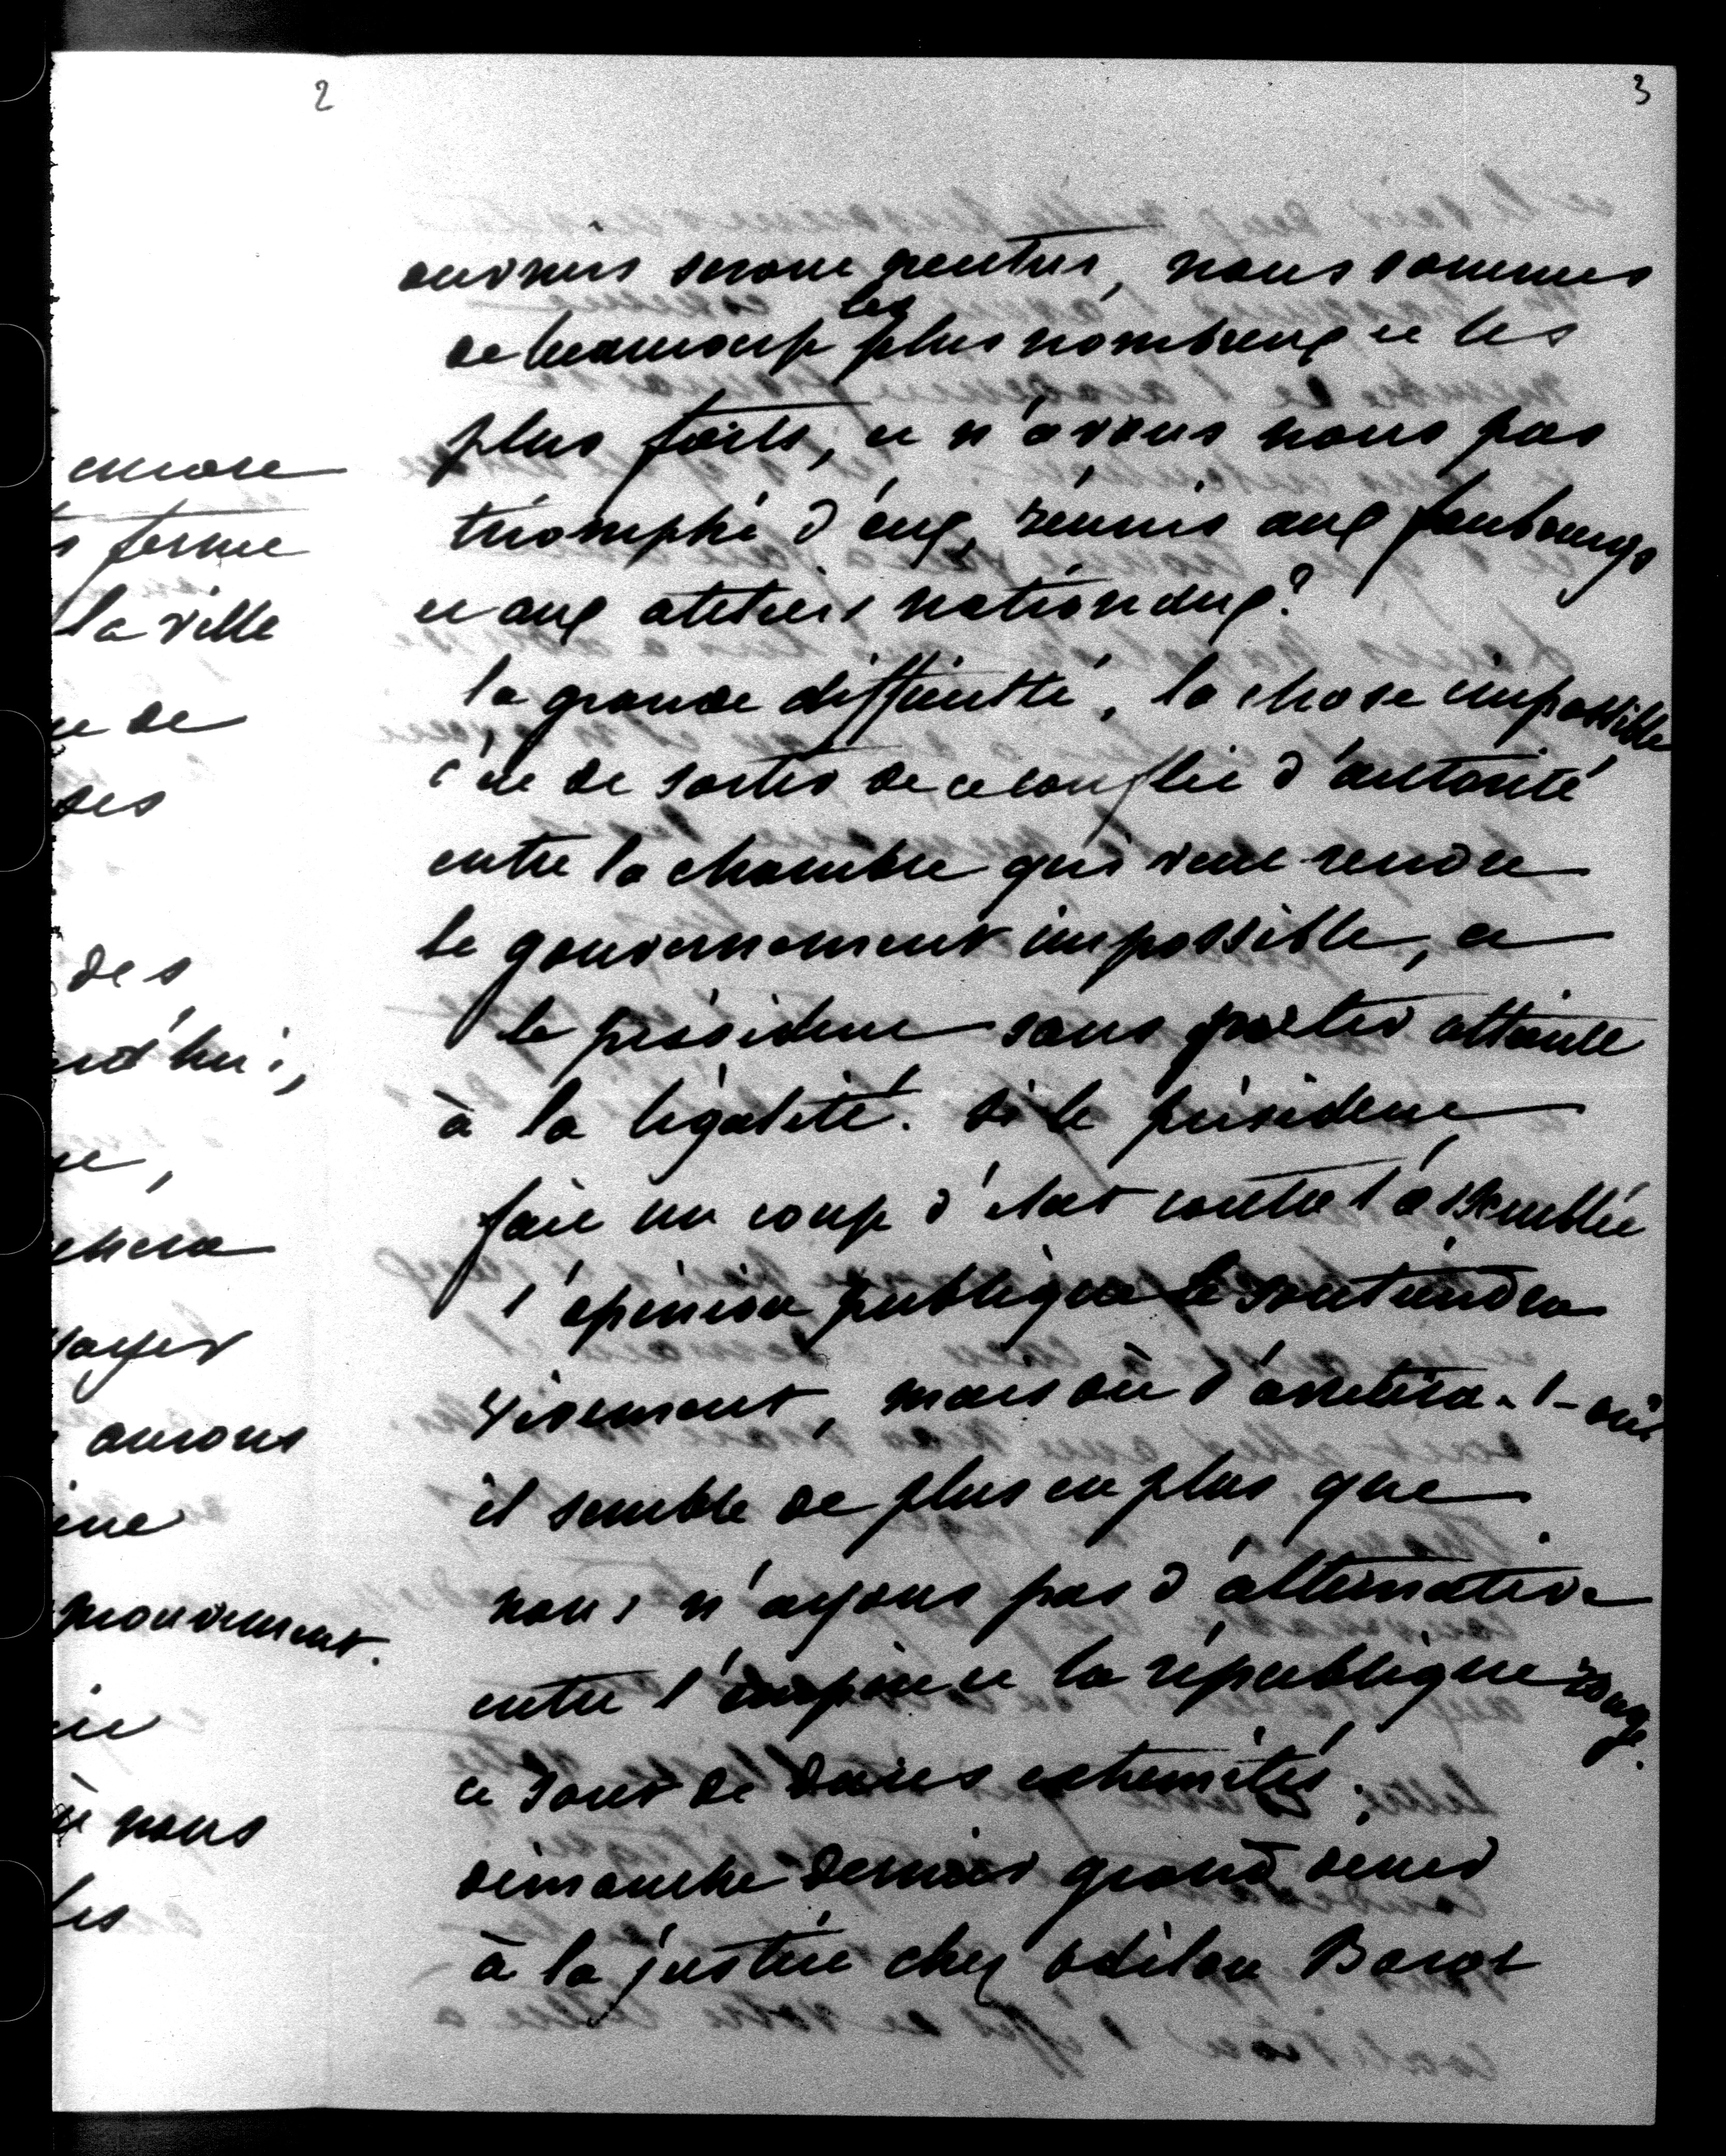 2
encore
ferme
la ville
de
des
des
rd'hui,
chera
ayer
aurons
mouvement.
nous
les
3
ouvriers seront neutres, nous sommes
de beaucoup les plus nombreux et les
plus forts, et n'avons nous pas
triomphé d'eux, réunis aux faubourgs
et aux ateliers nationaux?
la grande difficulté, la chose impossible
c'est de sortir de ce conflit d'autorité
entre la chambre qui veut rendre
le gouvernement impossible, et
le président sans porter atteinte
à la légalité. si le président
fait un coup d'état contre l'assemblée
l'opinion publique le soutiendra
vivement, mais où s'arrêtera-t-on?
il semble de plus en plus que
nous n'ayons pas d'alternative
entre l'empire et la république rouge.
ce sont de dures extrémités.
dimanche dernier grand diner
à la justice chez odilon Barot